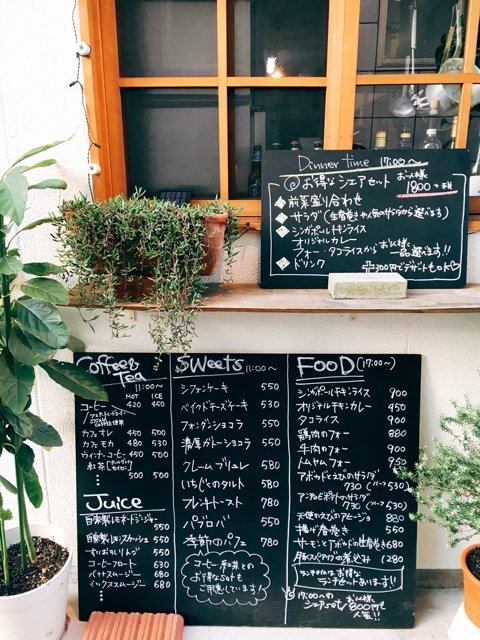 Dinner time 17:00〜
お得なシェアセット お一人様
1800+税
前菜盛り合わせ
サラダ(生春巻きや人気のサラダから選べます)
シンガポールチキンライス
オリジナルカレー
フォー・タコライスから お一人様 一品選べます!!
ドリンク
+300円でデザートもOK♡
Coffee & Tea
11:00〜
HOT ICE
コーヒー 420 450
カフェオレ 480 530
カフェモカ 480 530
ウィンナーコーヒー 450 500
紅茶 500 500
Juice
自家製レモネードジンジャー 550
自家製レモンスカッシュ 550
すりおろしりんご 550
コーヒーフロート 630
バナナスムージー 680
ミックススムージー 680
Sweets 11:00〜
シフォンケーキ 550
ベイクドチーズケーキ 530
フォンダンショコラ 550
濃厚ガトーショコラ 550
クレームブリュレ 550
いちじくのタルト 550
フレンチトースト 780
パブロバ 550
季節のパフェ 780
コーヒー・紅茶との
お得なsetも
ご用意しています!
FOOD (17:00〜)
シンガポールチキンライス 900
オリジナルチキンカレー 950
タコライス 900
鶏肉のフォー 880
牛肉のフォー 950
トムヤムフォー 950
アボカドとえびのサラダ
730 (ハーフ 530)
アンチョビポテトのサラダ
730 (ハーフ 530)
天使のえびのアヒージョ 880
揚げ春巻き 550
サーモンとアボカドの生春巻き 680
豚スペアリブの煮込み 1280
ランチタイムはお得な
ランチセットあります!!
17:00〜の
シェアset/1800円も
人気!!